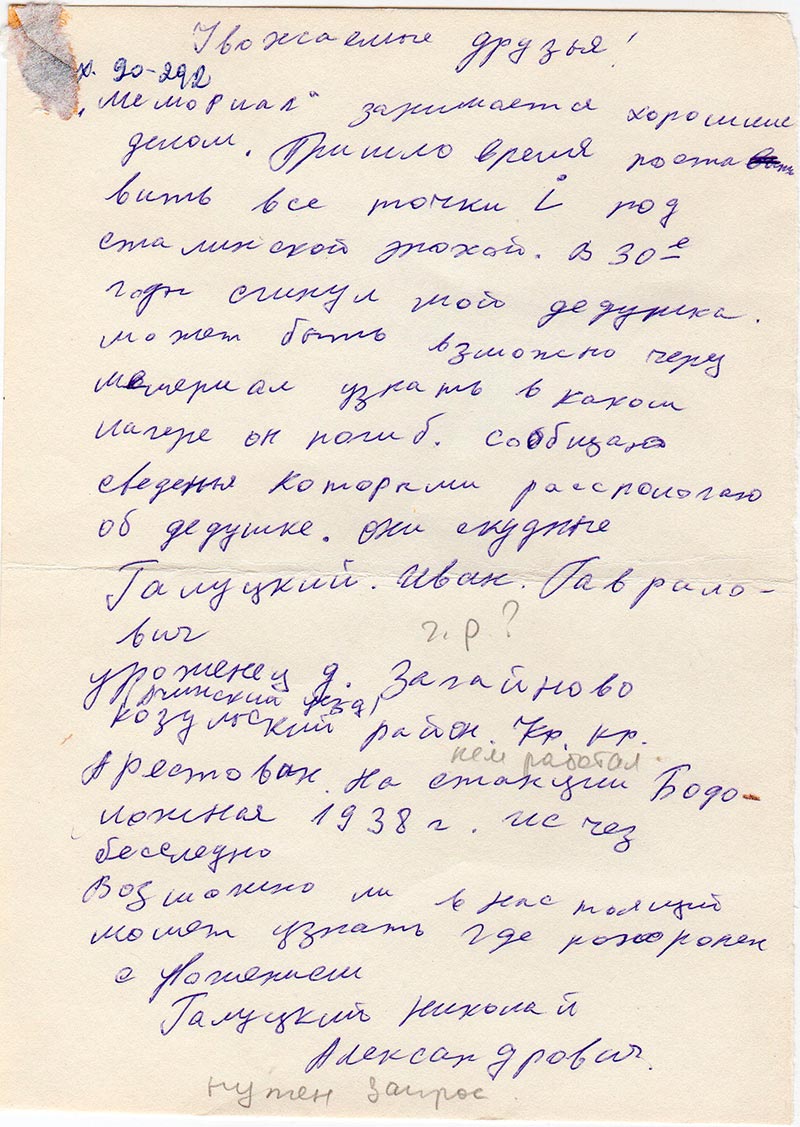 Уважаемые друзья!
х. 90-292
„Мемориал“ занимается хорошим
делом. Пришло время поста
вить все точки i под
сталинской эпохой. В 30е
годы сгинул мой дедушка.
может быть взможно через
мемериал узнать в каком
лагере он погиб. сообщаю
сведенья которыми расспологаю
об дедушке. они скудные
Галуцкий. Иван. Гаврало-
вич
г.р.?
уроженец д. Загайново
Ачинский уезд,
козульский район. Кр. кр.
кем работал.
Арестован. На станции Бодо-
ложная 1938 г. исчез
бесследно
Возможно ли в настоящий
момет узнать где похоронен
с
Галуцкий Николай
Александрович.
нужен запрос